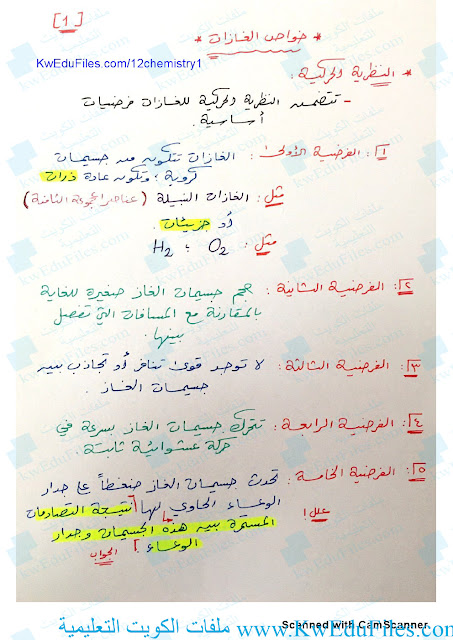 [1]
* خواص الغازات *
KwEduFiles.com/12chemistry1
* النظرية الحركية :
- تتضمن النظرية الحركية للغازات فرضيات
أساسية.
١: الفرضية الأولى : الغازات تتكون من جسيمات
كروية ، وتكون عادة ذرات
مثل : الغازات النبيلة (عناصر المجموعة الثامنة)
أو جزيئات.
مثل : O2 ، H2
٢: الفرضية الثانية : حجم جسيمات الغاز صغيرة للغاية
بالمقارنة مع المسافات التي تفصل
بينها.
٣: الفرضية الثالثة : لا توجد قوى تنافر أو تجاذب بين
جسيمات الغاز.
٤: الفرضية الرابعة : تتحرك جسيمات الغاز بسرعة في
حركة عشوائية ثابتة.
٥: الفرضية الخامسة : تحدث جسيمات الغاز ضغطاً على جدار
الوعاء الحاوي لها [نتيجة التصادمات
علل!
المستمرة بين هذه الجسيمات وجدار
الوعاء] الجواب
Scanned with CamScanner
www.KwEduFiles.com ملفات الكويت التعليمية